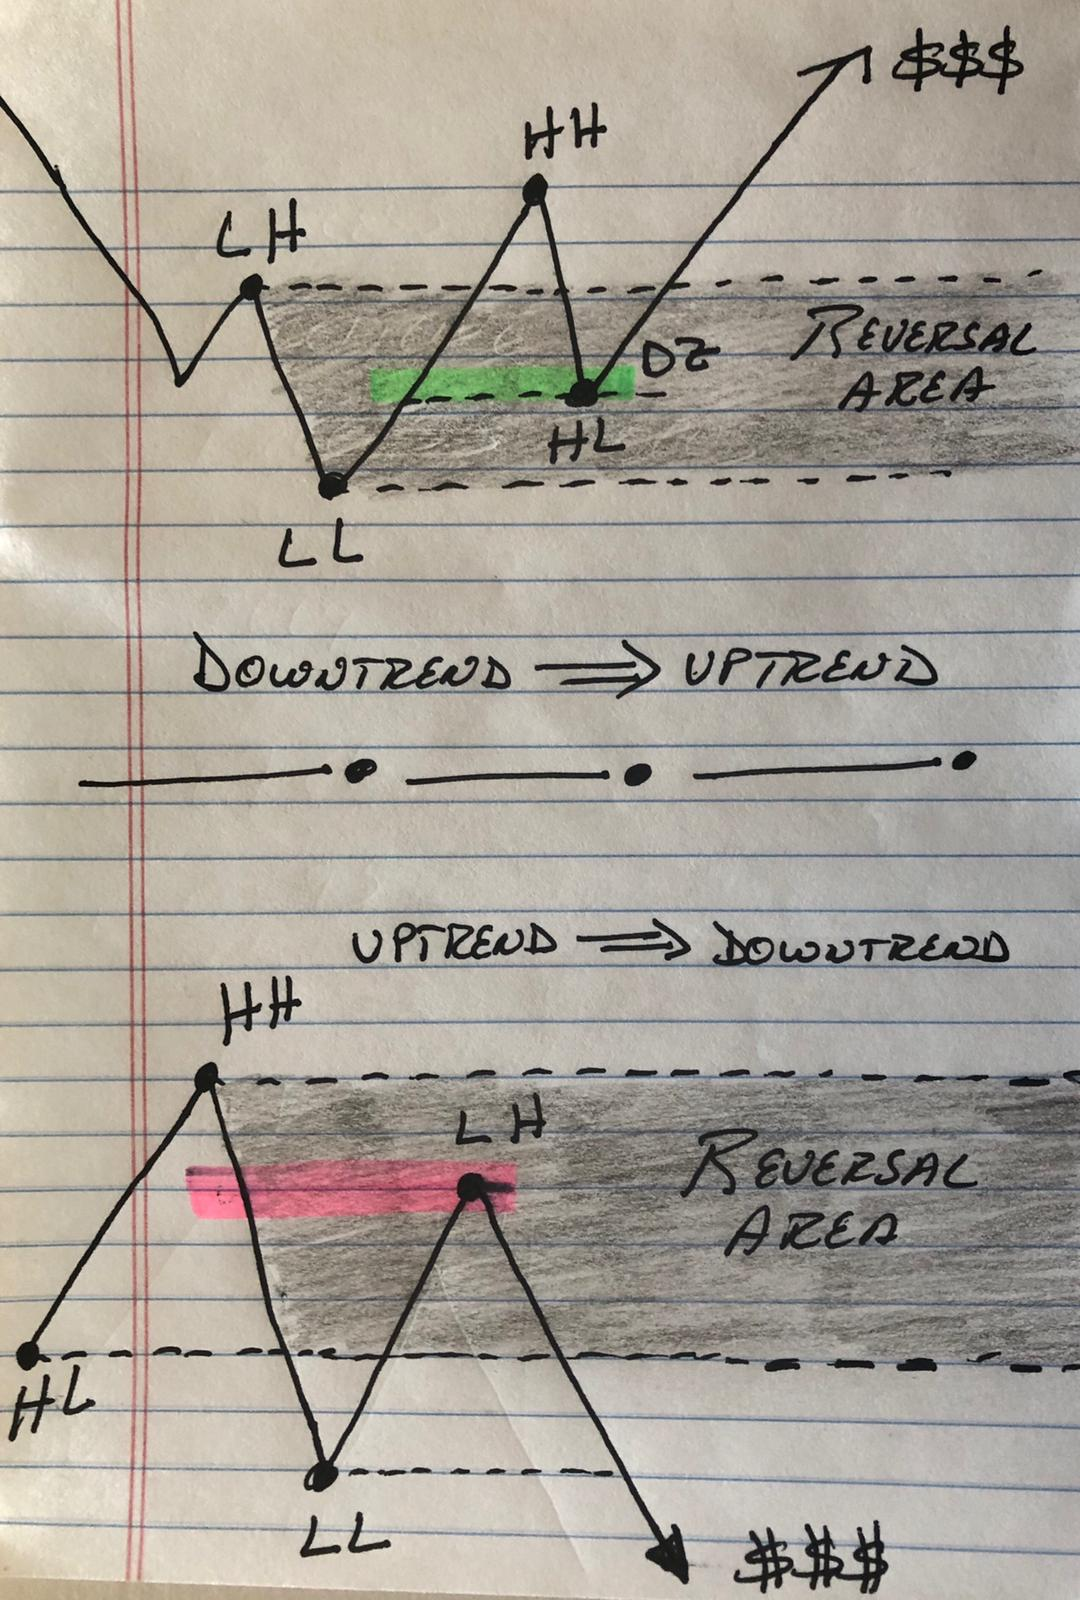 $$$
HH
LH
REVERSAL
AREA
DZ
HL
LL
DOWNTREND ⇒ UPTREND
UPTREND ⇒ DOWNTREND
HH
LH
REVERSAL
AREA
HL
LL
$$$